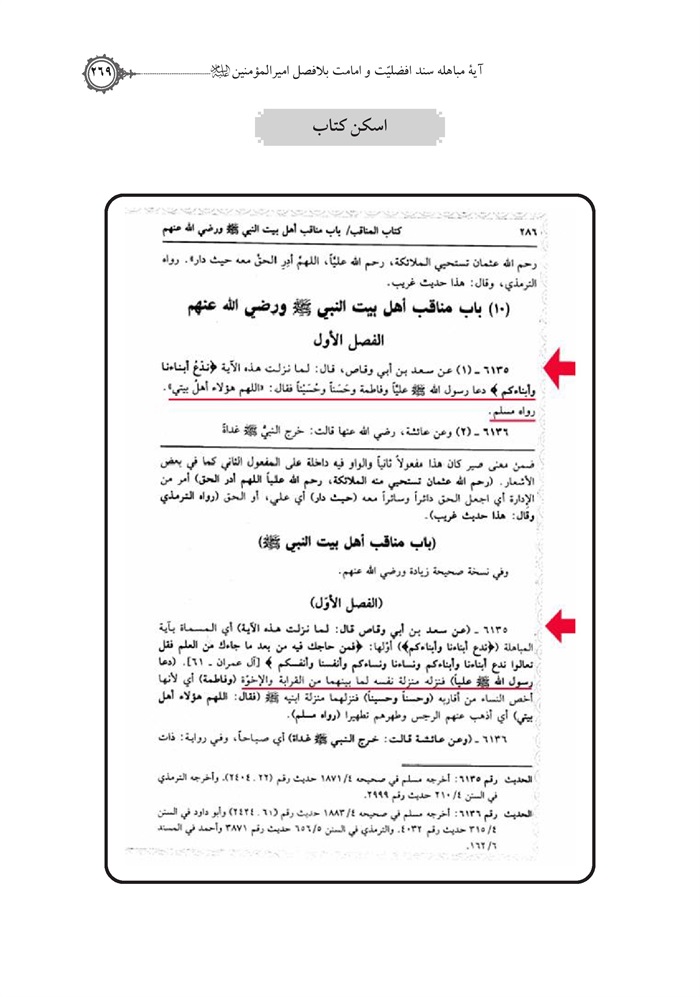 آیهٔ مباهله سند افضلیّت و امامت بلافصل امیرالمؤمنین
۲۶۹
اسکن کتاب
٢٨٦
كتاب المناقب/ باب مناقب أهل بيت النبي ﷺ ورضي الله عنهم
رحم الله عثمان تستحيي الملائكة، رحم الله عليّاً، اللهمَّ أدِرِ الحقَّ معه حيث دار». رواه
الترمذي، وقال: هذا حديث غريب.
(١٠) باب مناقب أهل بيت النبي ﷺ ورضي الله عنهم
الفصل الأول
٦١٣٥ ـ (١) عن سعد بن أبي وقاص، قال: لما نزلت هذه الآية ﴿نَدْعُ أبناءنا
وأبناءكم﴾ دعا رسول الله ﷺ عليّاً وفاطمة وحَسَناً وحُسَيْناً فقال: «اللهم هؤلاء أهلُ بيتي».
رواه مسلم.
٦١٣٦ ـ (٢) وعن عائشة، رضي الله عنها قالت: خرج النبيُّ ﷺ غداةً
فمن معنى صير كان هذا مفعولاً ثانياً والواو فيه داخلة على المفعول الثاني كما في بعض
الأشعار. (رحم الله عثمان تستحيي منه الملائكة، رحم الله علياً اللهم أدر الحق) أمر من
الإدارة أي اجعل الحق دائراً وسائراً معه (حيث دار) أي علي، أو الحق (رواه الترمذي
وقال: هذا حديث غريب).
(باب مناقب أهل بيت النبي ﷺ)
وفي نسخة صحيحة زيادة ورضي الله عنهم.
(الفصل الأوّل)
٦١٣٥ ـ (عن سعد بن أبي وقاص قال: لما نزلت هذه الآية) أي المسماة بآية
المباهلة (﴿ندع أبناءنا وأبناءكم﴾) أوّلها: ﴿فمن حاجك فيه من بعد ما جاءك من العلم فقل
تعالوا ندع أبناءنا وأبناءكم ونساءنا ونساءكم وأنفسنا وأنفسكم﴾ [آل عمران ـ ٦١]. (دعا
رسول الله ﷺ علياً) فنزله منزلة نفسه لما بينهما من القرابة والإخوّة (وفاطمة) أي لأنها
أخص النساء من أقاربه (وحسناً وحسيناً) فنزلهما منزلة ابنيه ﷺ (فقال: اللهم هؤلاء أهل
بيتي) أي أذهب عنهم الرجس وطهرهم تطهيرا (رواه مسلم).
٦١٣٦ ـ (وعن عائشة قالت: خرج النبي ﷺ غداة) أي صباحاً، وفي رواية: ذات
الحديث رقم ٦١٣٥: أخرجه مسلم في صحيحه ١٨٧١/٤ حديث رقم (٢٢. ٢٤٠٤). وأخرجه الترمذي
في السنن ٢١٠/٤ حديث رقم ٢٩٩٩.
الحديث رقم ٦١٣٦: أخرجه مسلم في صحيحه ١٨٨٣/٤ حديث رقم (٦١. ٢٤٢٤) وأبو داود في السنن
٣١٥/٤ حديث رقم ٤٠٣٢. والترمذي في السنن ٦٥٦/٥ حديث رقم ٣٨٧١ وأحمد في المسند
١٦٢/٦.